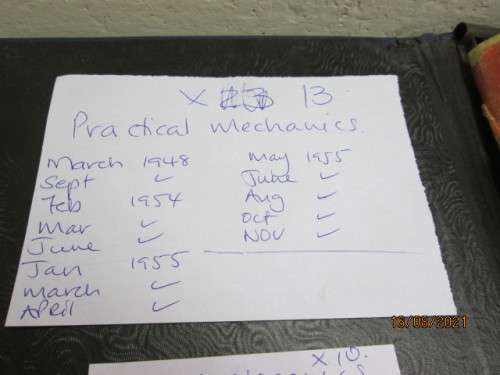 x 13
Practical Mechanics.
March 1948
Sept ✓
Feb 1954
Mar ✓
June ✓
Jan 1955
March ✓
April ✓
May 1955
June ✓
Aug ✓
Oct ✓
NOV ✓
x10.
16/09/2021